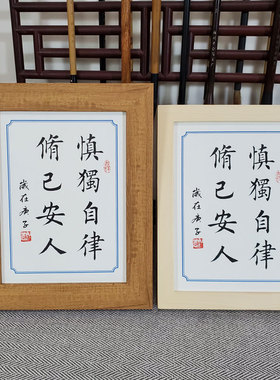 慎獨自律
脩己安人
歲在庚子
慎獨自律
脩己安人
歲在庚子